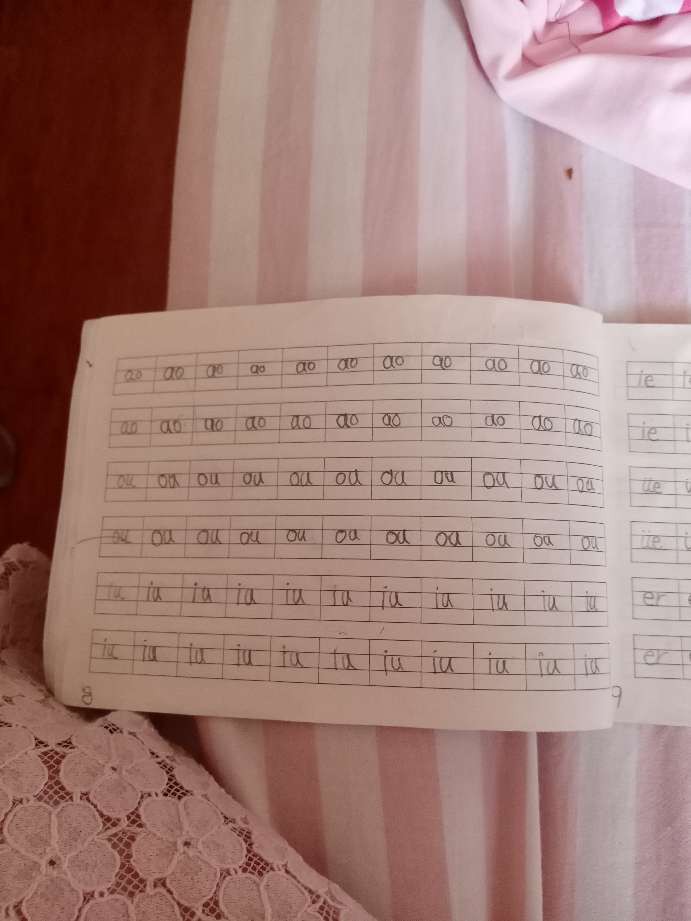 ao ao ao ao ao ao ao ao ao ao ao
ao ao ao ao ao ao ao ao ao ao ao
ou ou ou ou ou ou ou ou ou ou ou
ou ou ou ou ou ou ou ou ou ou ou
iu iu iu iu iu iu iu iu iu iu iu
iu iu iu iu iu iu iu iu iu iu iu
8
ie
ie
üe
üe
er
er
9